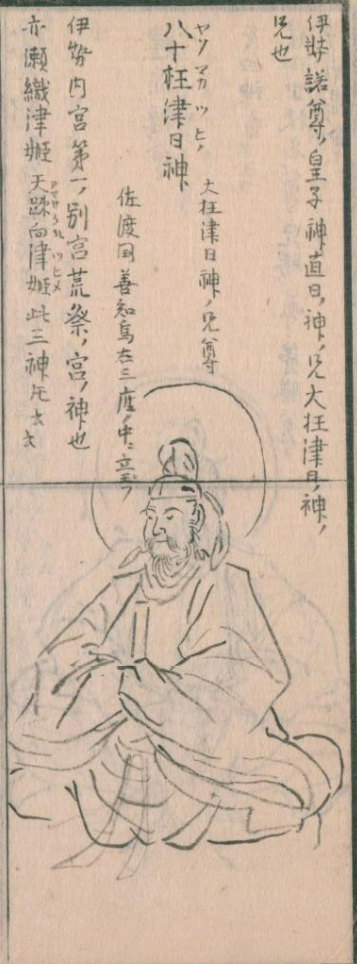 伊弉諾尊ノ皇子神直日ノ神ノ兄大枉津日ノ神ノ
兄也
八十枉津日神
ヤソマガツヒノ
大枉津日神ノ兄尊
佐渡国善知鳥在三座ノ中ニ立玉フ
伊勢内宮第一ノ別宮荒祭ノ宮ノ神也
亦瀬織津姫 天疎向津姫此三神